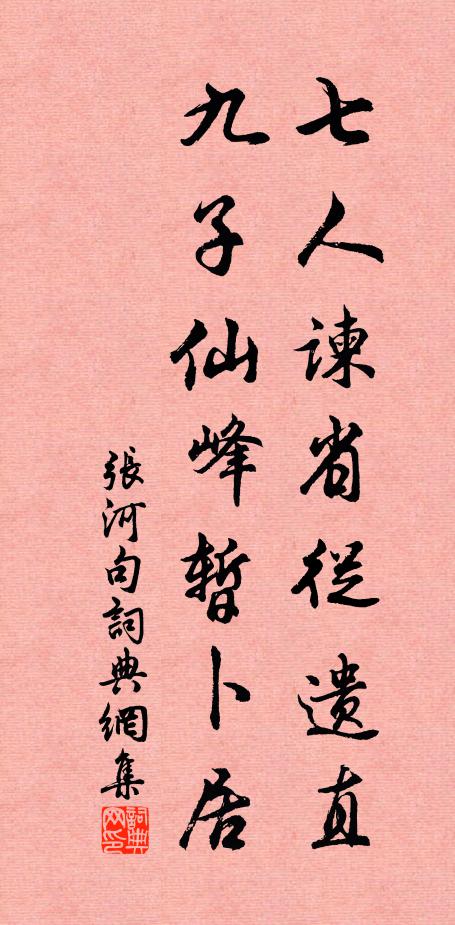 七人諫省從遺直
九子仙峰暫卜居
張河句詞典網集
詞典网印